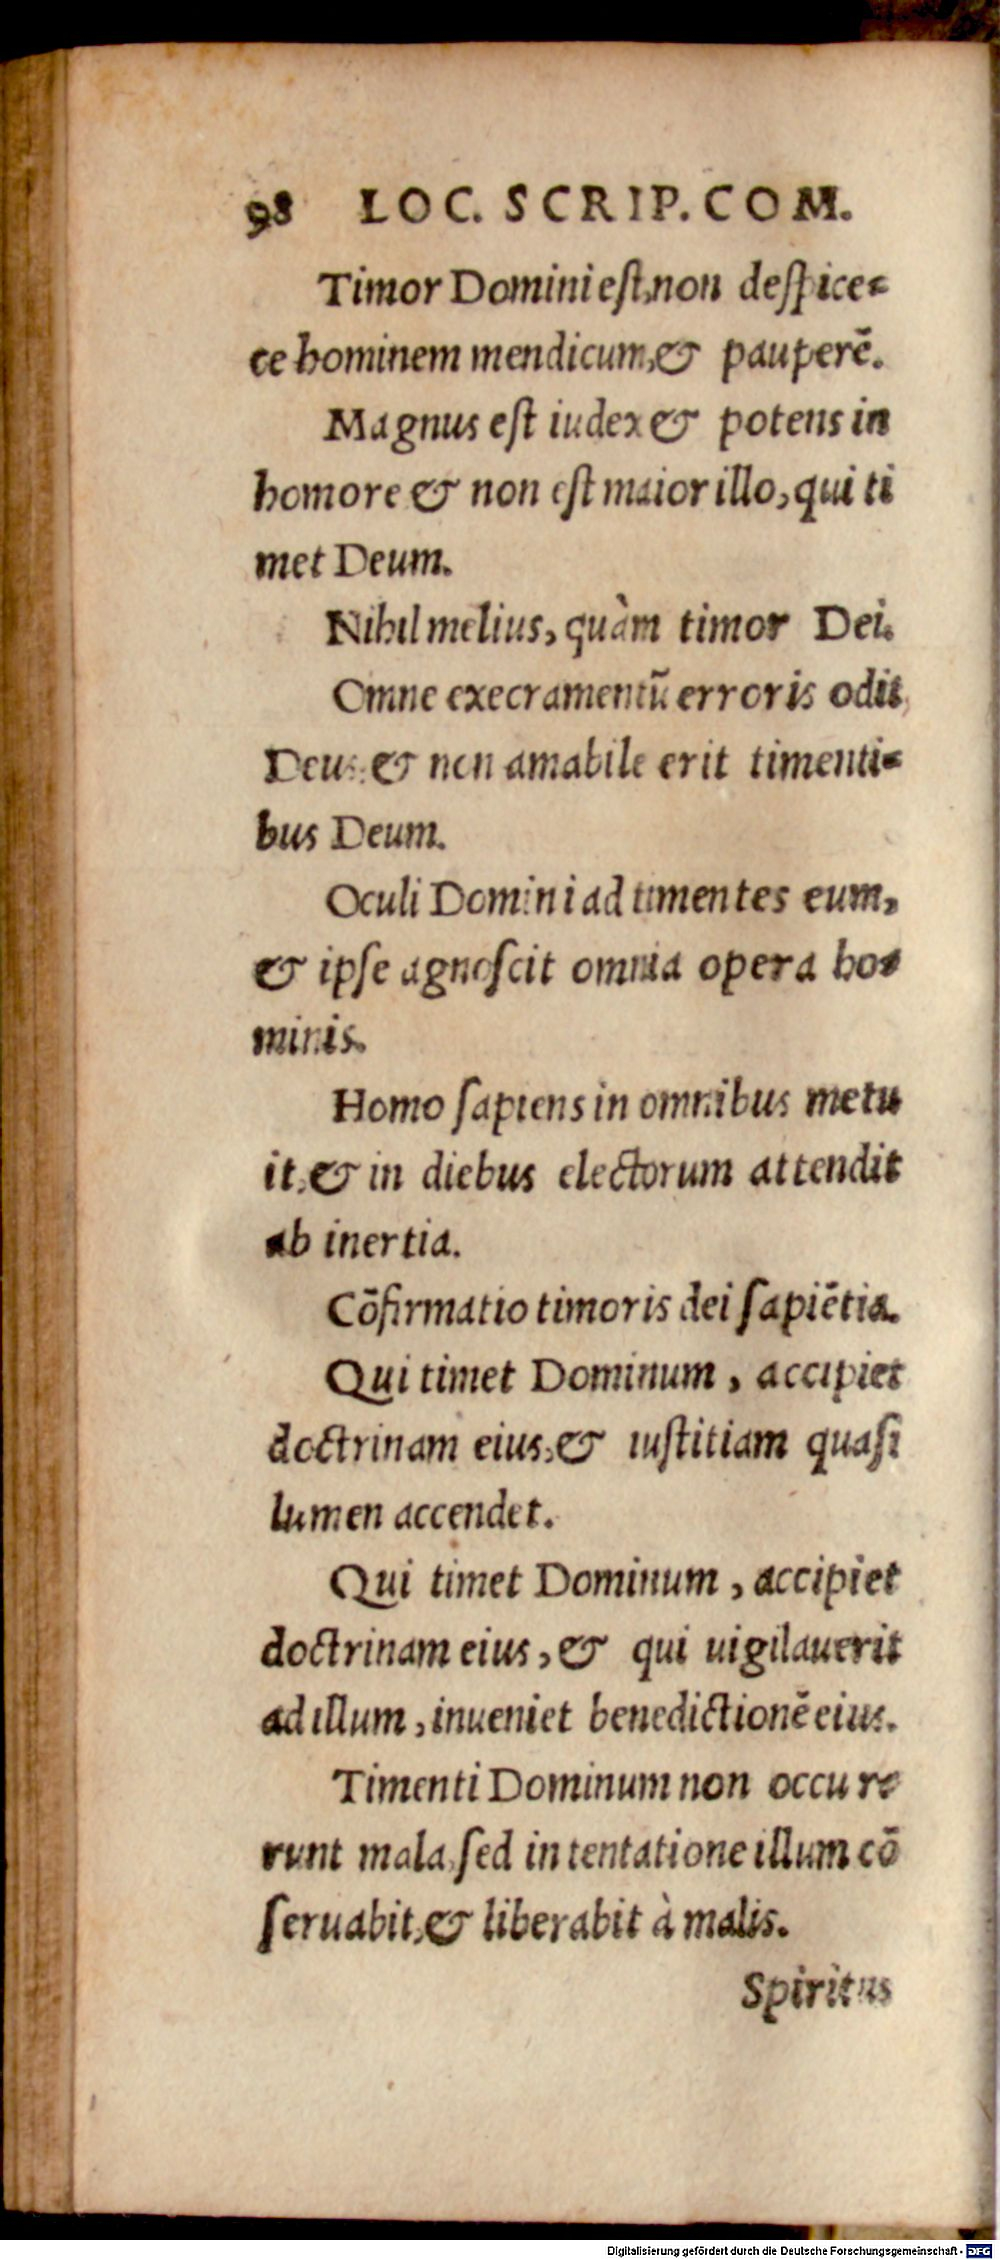 98 LOC. SCRIP. COM.
Timor Domini est, non despice-
re hominem mendicum, & pauperē.
Magnus est iudex & potens in
homore & non est maior illo, qui ti
met Deum.
Nihil melius, quàm timor Dei.
Omne execramentū erroris odit
Deus, & non amabile erit timenti-
bus Deum.
Oculi Domini ad timentes eum,
& ipse agnoscit omnia opera ho-
minis.
Homo sapiens in omnibus metu
it, & in diebus electorum attendit
ab inertia.
Cōfirmatio timoris dei sapiētia.
Qui timet Dominum, accipiet
doctrinam eius, & iustitiam quasi
lumen accendet.
Qui timet Dominum, accipiet
doctrinam eius, & qui uigilauerit
ad illum, inueniet benedictionē eius.
Timenti Dominum non occurre
runt mala, sed in tentatione illum cō
seruabit, & liberabit à malis.
Spiritus
Digitalisierung gefördert durch die Deutsche Forschungsgemeinschaft - DFG